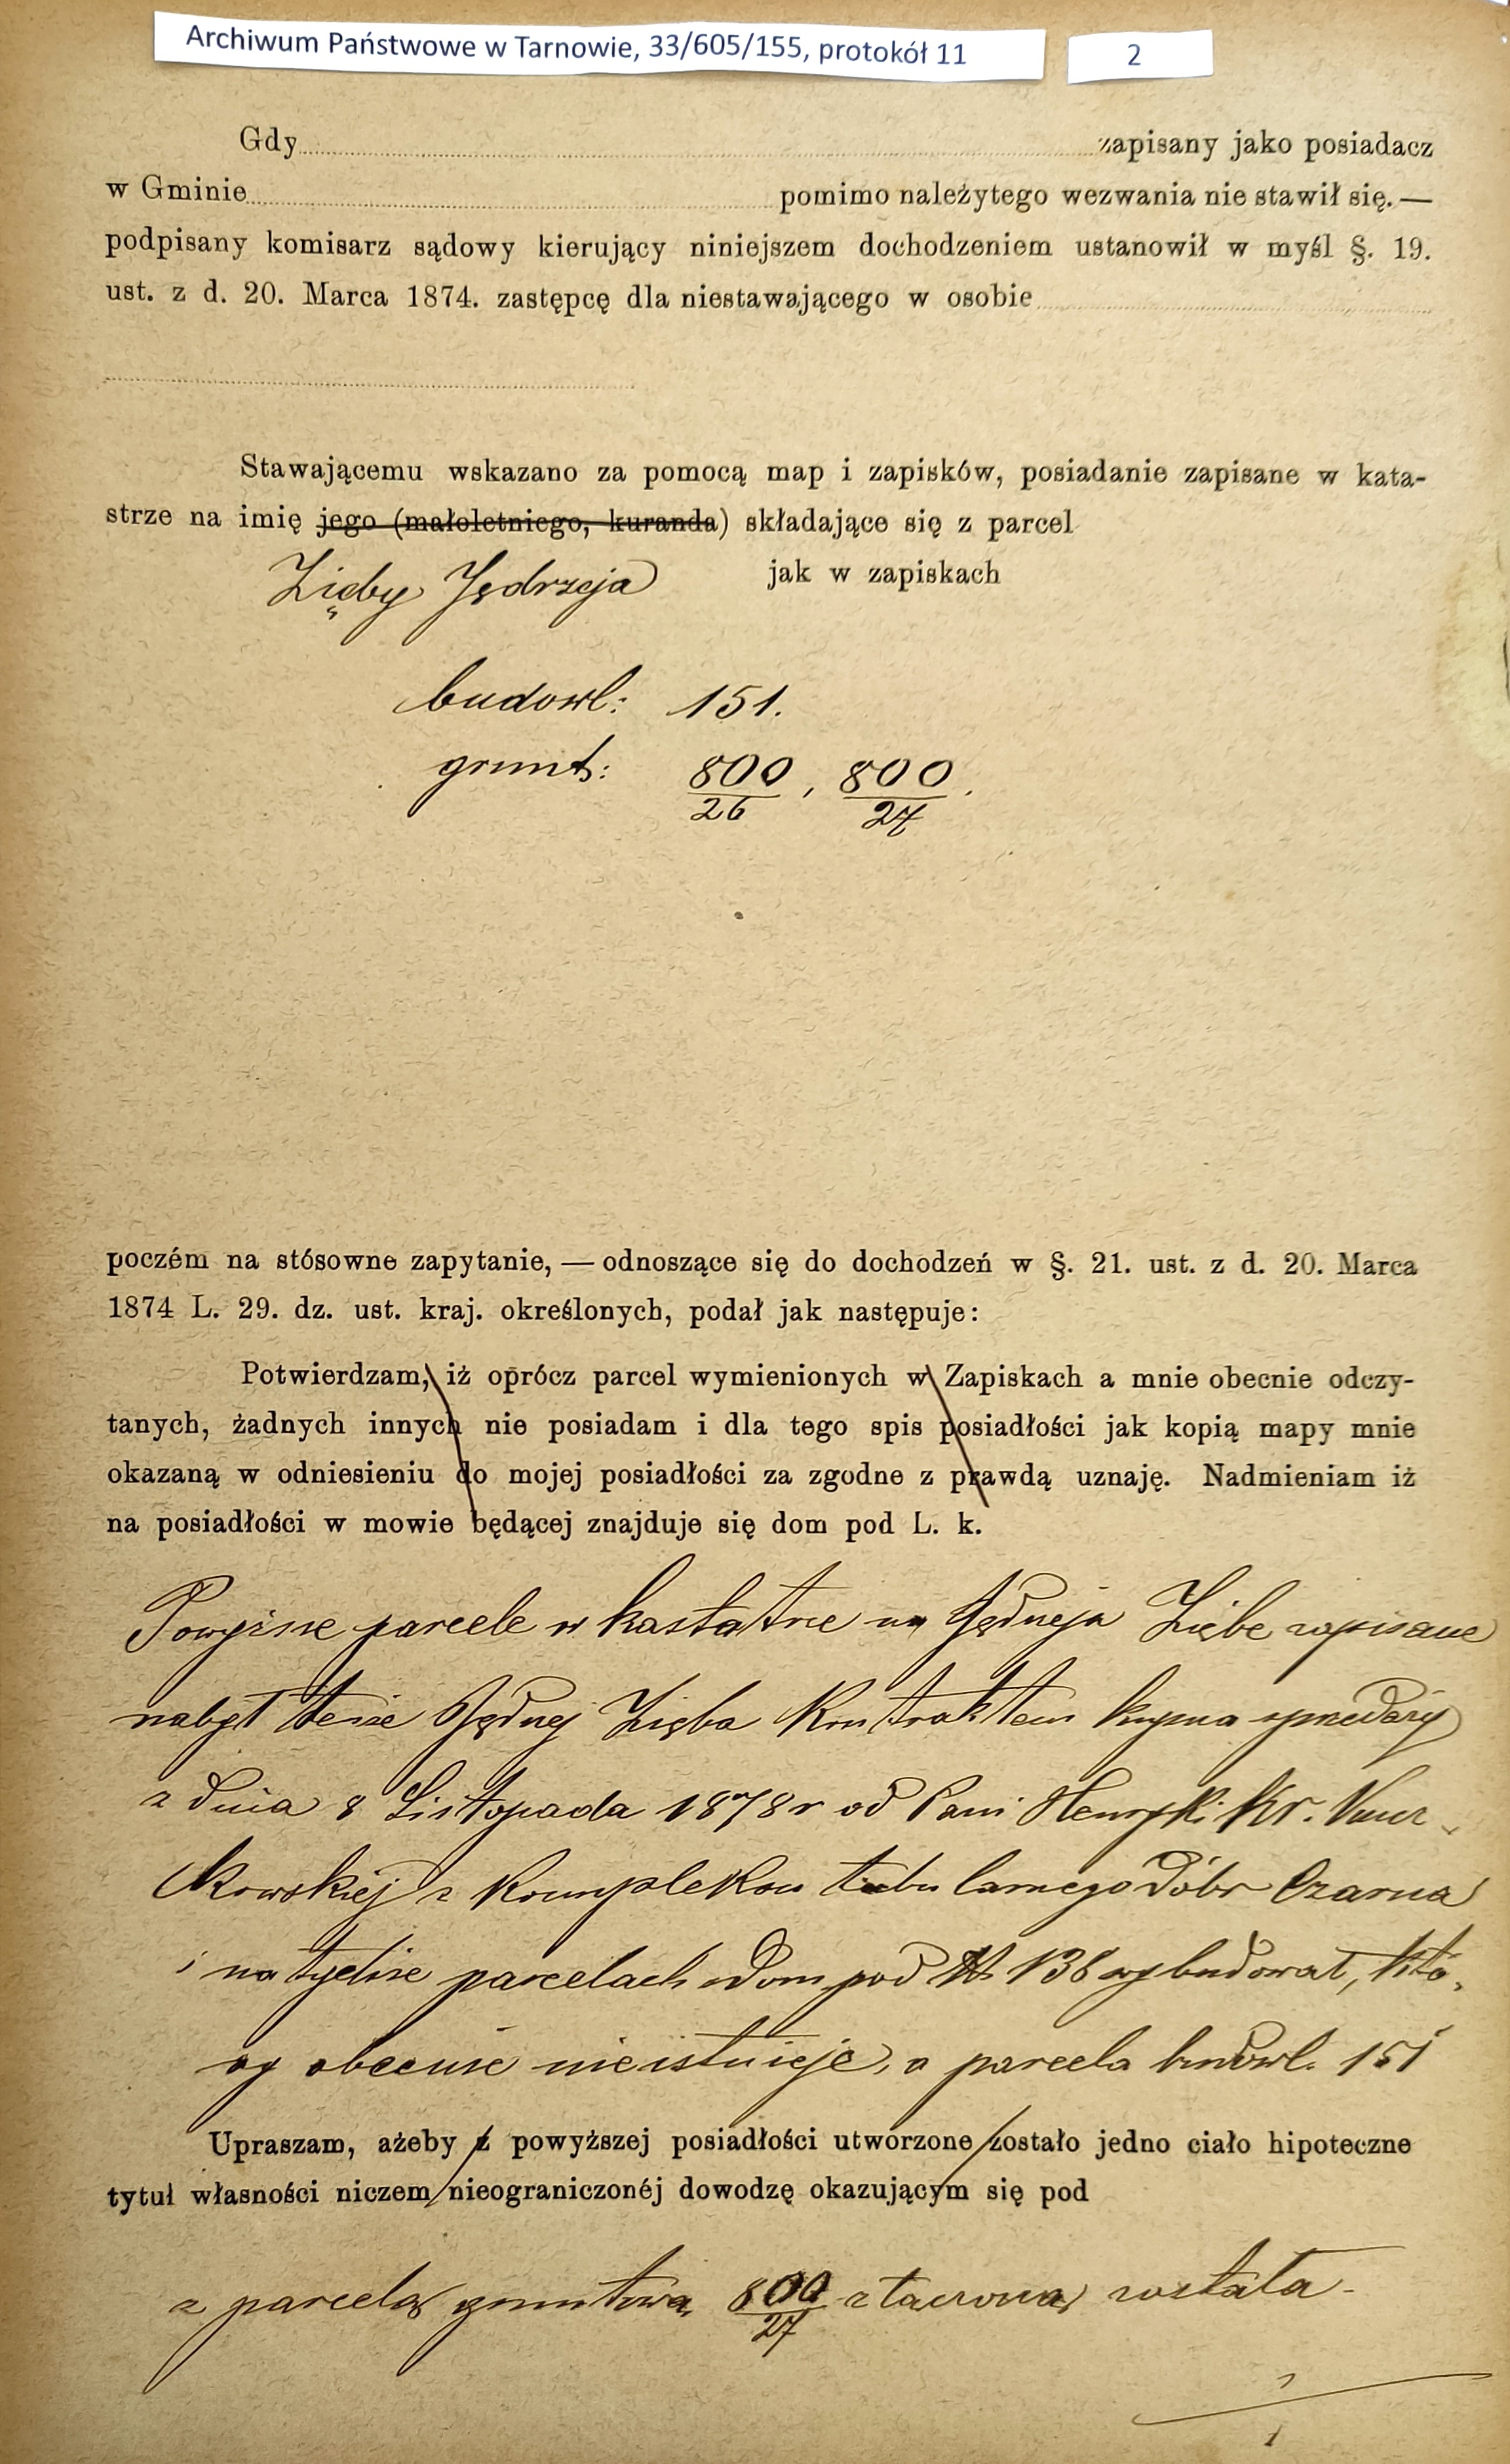 Archiwum Państwowe w Tarnowie, 33/605/155, protokół 11
2
Gdy zapisany jako posiadacz
w Gminie pomimo należytego wezwania nie stawił się. —
podpisany komisarz sądowy kierujący niniejszem dochodzeniem ustanowił w myśl §. 19.
ust. z d. 20. Marca 1874. zastępcę dla niestawającego w osobie
Stawającemu wskazano za pomocą map i zapisków, posiadanie zapisane w kata-
strze na imię jego (małoletniego, kuranda) składające się z parcel
Zięby Jędrzeja jak w zapiskach
budowl: 151.
grunt: 800/26, 800/27.
poczém na stósowne zapytanie, — odnoszące się do dochodzeń w §. 21. ust. z d. 20. Marca
1874 L. 29. dz. ust. kraj. określonych, podał jak następuje:
Potwierdzam, iż oprócz parcel wymienionych w Zapiskach a mnie obecnie odczy-
tanych, żadnych innych nie posiadam i dla tego spis posiadłości jak kopią mapy mnie
okazaną w odniesieniu do mojej posiadłości za zgodne z prawdą uznaję. Nadmieniam iż
na posiadłości w mowie będącej znajduje się dom pod L. k.
Powyższe parcele w katastrze na Jędrzeja Ziębę zapisane
nabył tenże Jędrzej Zięba Kontraktem kupna sprzedaży
z dnia 8 Listopada 1878 r od Pani Henryki Kr.
z Kompleksu tabularnego dóbr Czarna
i na tychże parcelach dom pod N 138 wybudował, któ-
ry obecnie nie istnieje, a parcela budowl. 151
Upraszam, ażeby z powyższej posiadłości utworzone zostało jedno ciało hipoteczne
tytuł własności niczem nieograniczonéj dowodzę okazującym się pod
z parcelą gruntową 800/27 złączoną została -